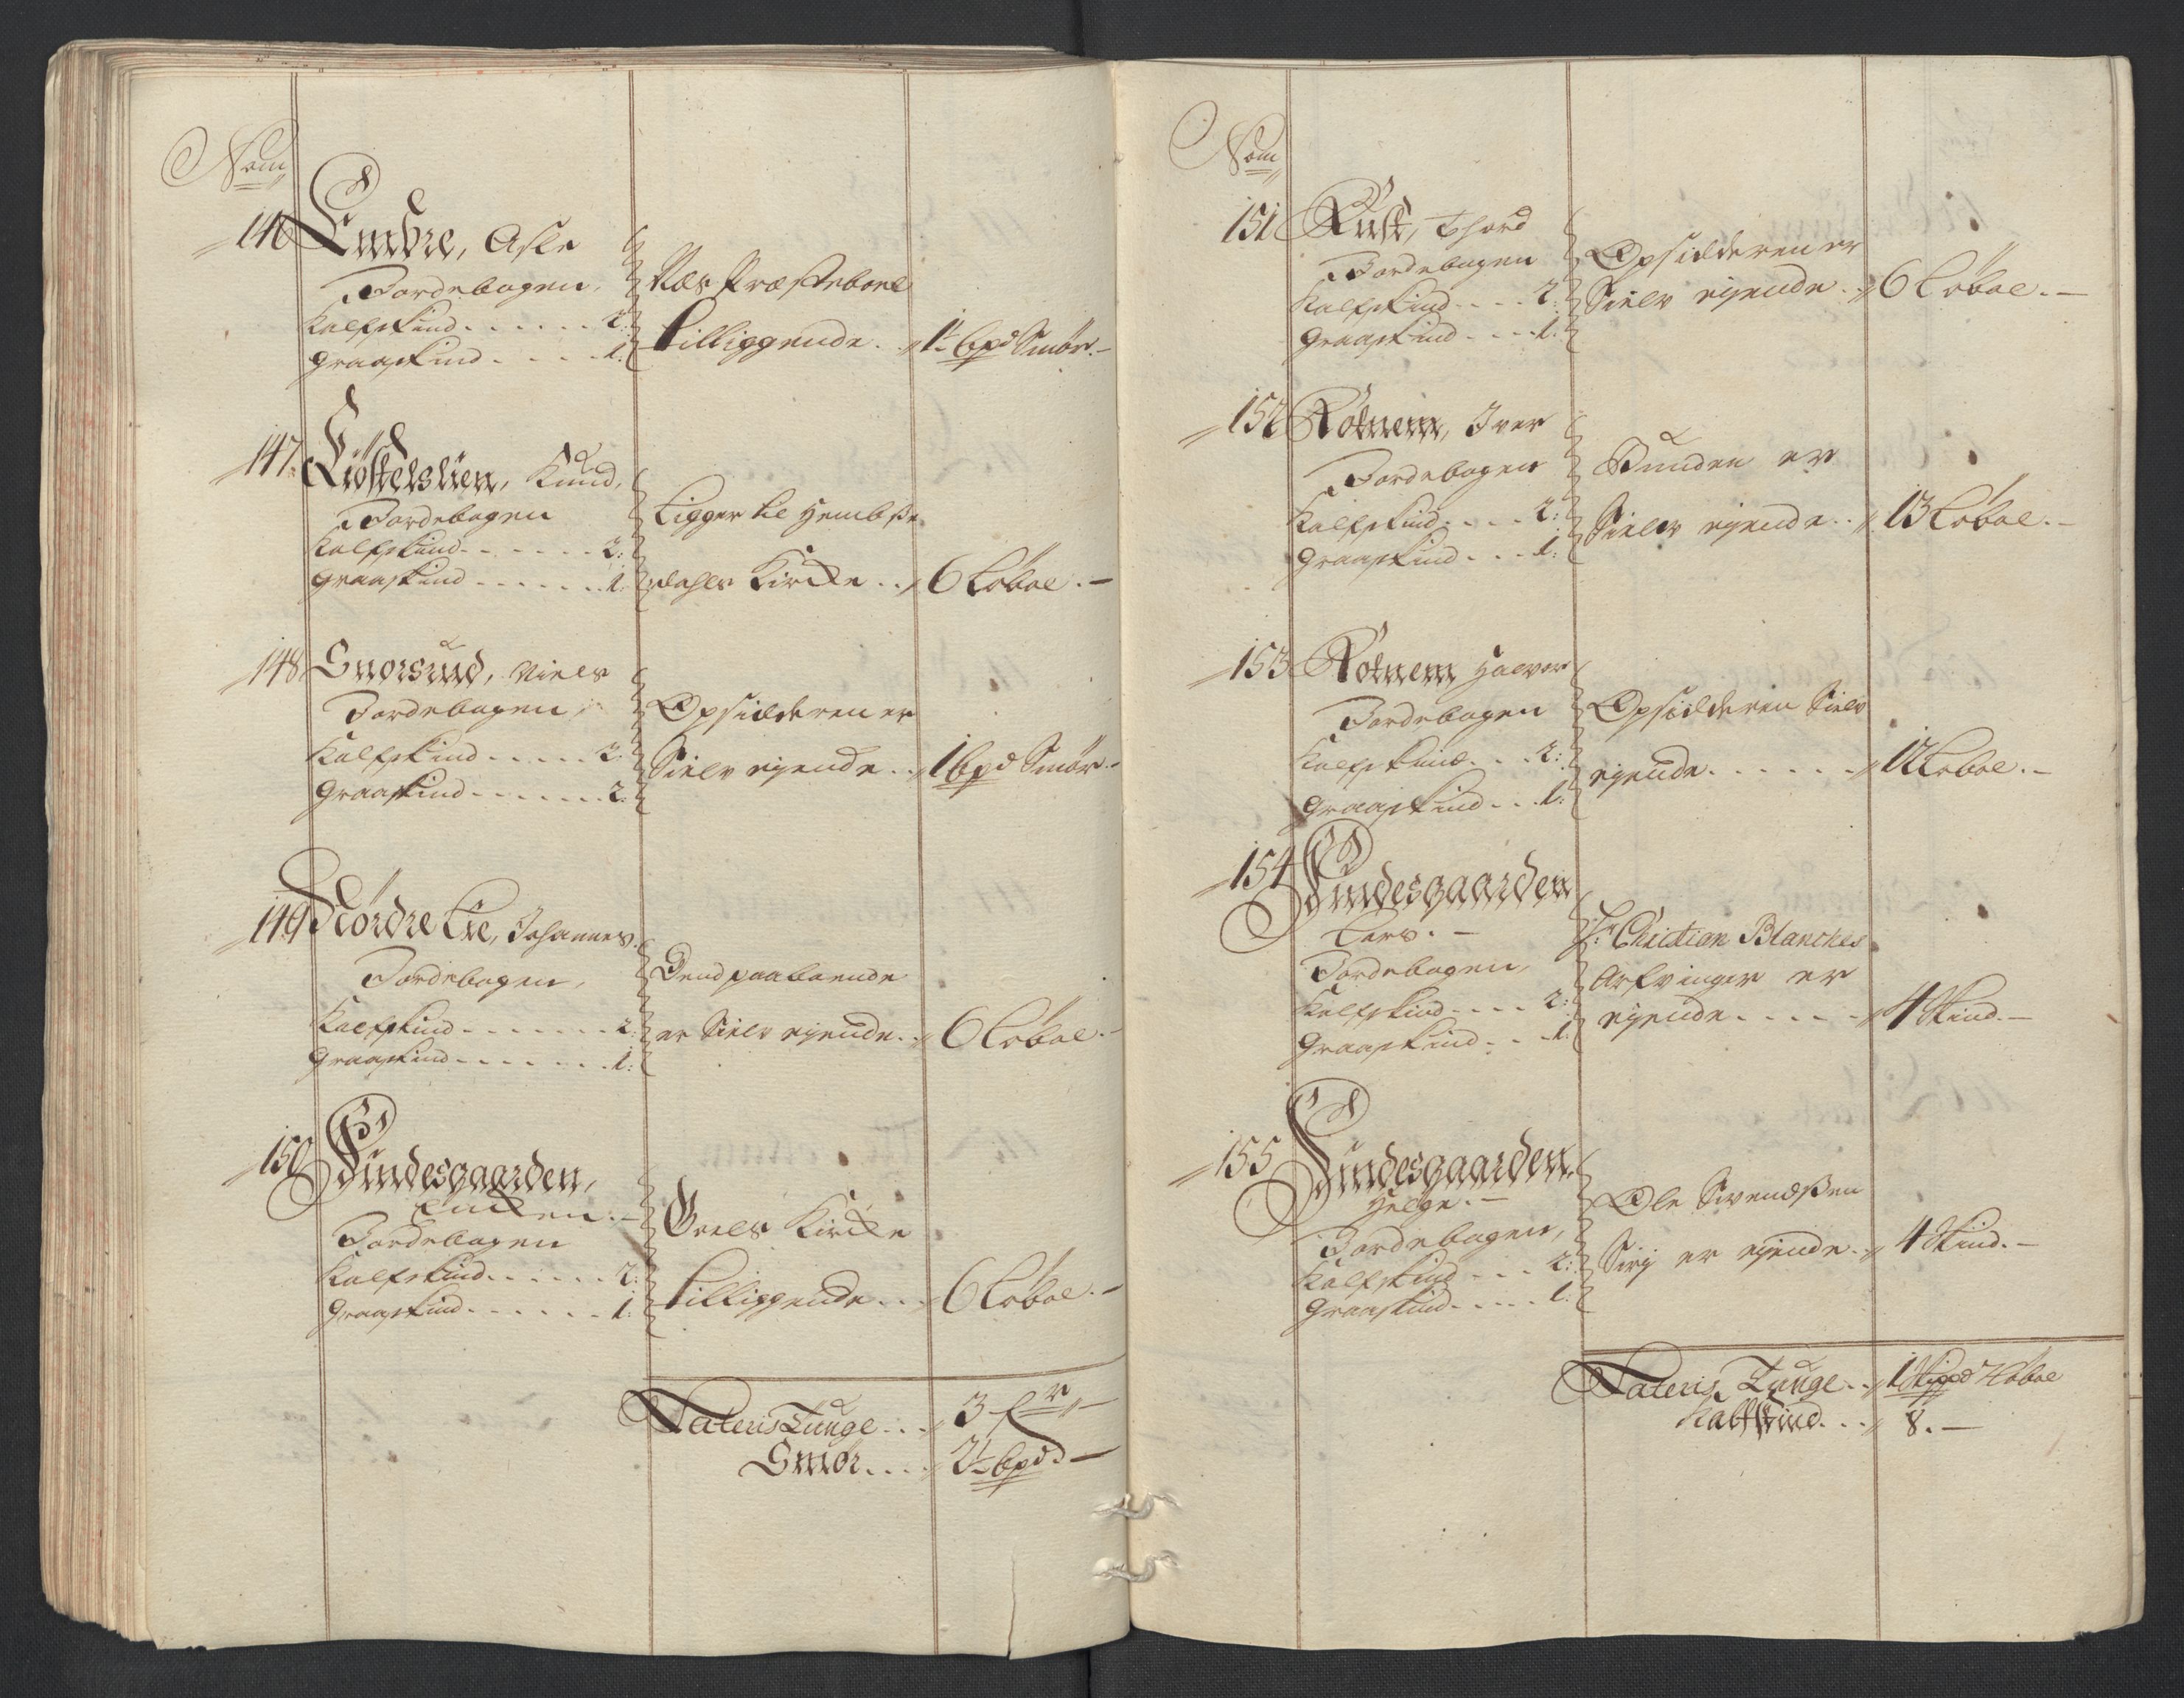 Nom
146 Embre, Asle
Jordebogen,
Kalfskind . . . . . . 2:
Graaskind . . . . . 1:
Næs Præsteboel
tilliggende . . 1½ bpd Smør. –
147. Liøstelslien, Knud,
Jordebogen
Kalfskind . . . . . . 2:
Graaskind . . . . . . 1:
Ligger til Hembse
dahls Kircke . . 6 Løboe. –
148 Snorsrud, Niels
Jordebogen,
Kalfskind . . . . . 2:
Graaskind . . . . . . 2:
Opsidderen er
Sielv eyende . . 1 bpd Smør. –
149 Nørdre Lie, Johannes.
Jordebogen,
Kalfskind . . . . . . . 2:
Graaskind . . . . . . . 1:
Dend paaboende
er Sielv eyende . . 6 Løboe. –
150 Findesgaarden,
Encken. –
Jordebogen
Kalfskind . . . . . . 2:
Graaskind . . . . . . 1:
Goels Kircke
tilliggende . . . 6 Løboe. –
Lateris Tunge . . . 3
Smør . . . . 2½ bpd. –
Nom
151 Rust, Thord
Jordebogen
Kalfskind . . . . 2:
Graaskind . . . 1:
Opsidderen er
Sielv eyende . . 6 Løboe. –
152 Rotnem, Iver
Jordebogen
Kalfskind . . . . 2:
Graaskind . . . 1:
Bunden er
Sielv eyende . . 13 Løboe. –
153 Rotnem Halvor
Jordebogen
Kalfskind . . . 2:
Graaskind . . . 1:
Opsidderen Sielv
eyende . . . . . . 12 Løboe. –
154 Findesgaarden
Lars. –
Jordebogen,
Kalfskind . . . . 2:
Graaskind . . . 1:
Sr Christian Blanches
Arfvinger er
eyende . . . . . 4 Skind. –
155 Findesgaarden.
Helge. –
Jordebogen,
Kalfskind . . . 2:
Graaskind . . . . . 1:
Ole Svendsen
Sirj er eyende . . 4 Skind. –
Lateris Tunge . . 1 Skippd Løboe
Kalfskind . . . 8. –